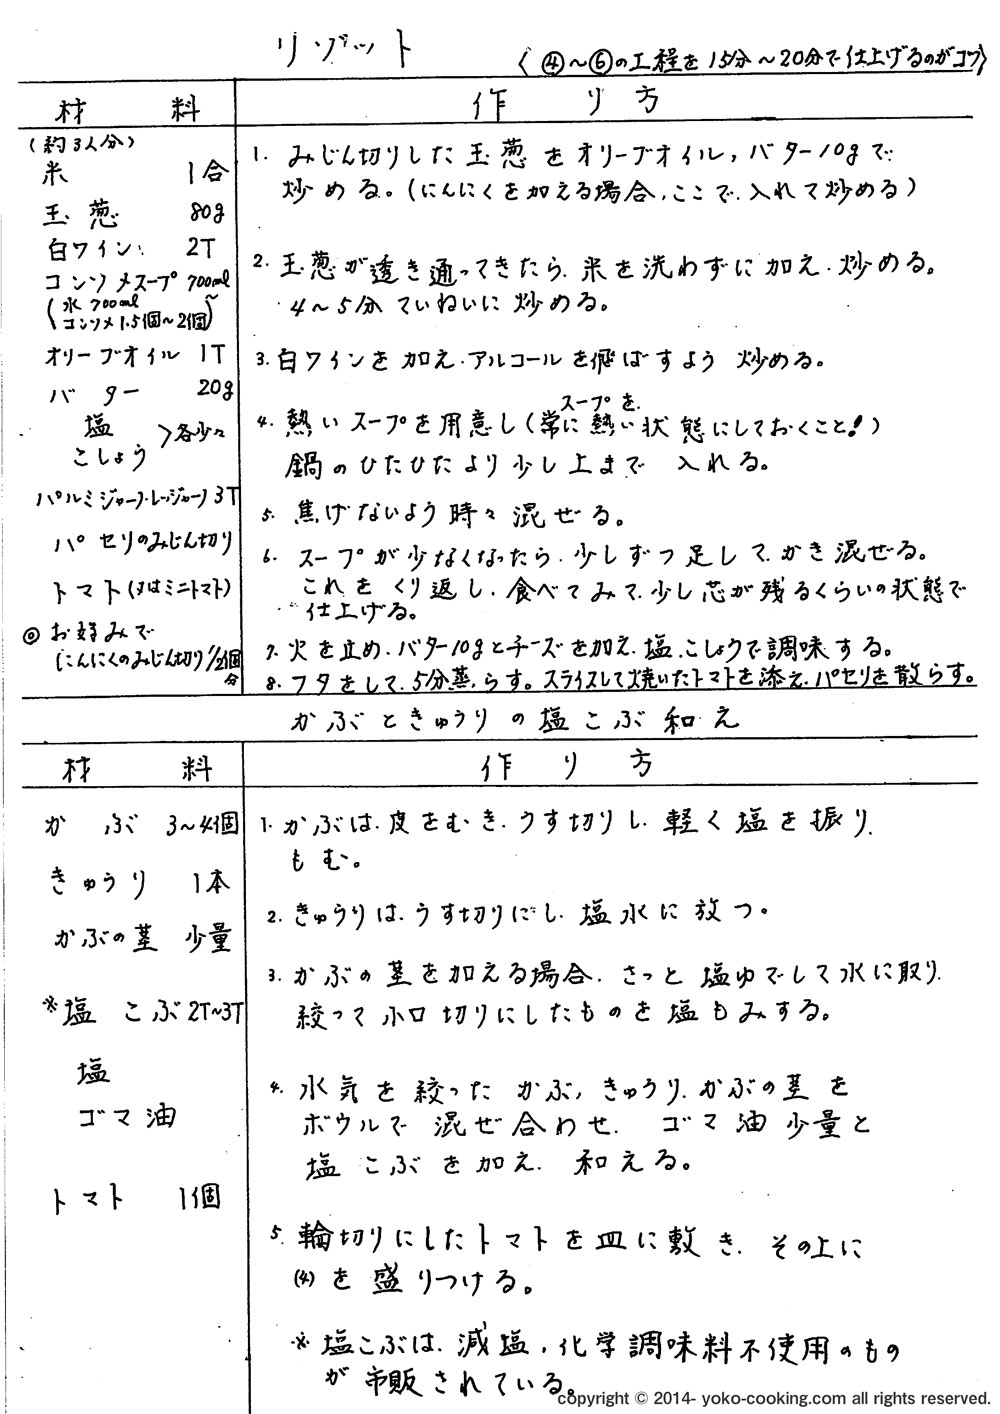 リゾット
〈④〜⑥の工程を15分〜20分で仕上げるのがコツ〉
材料
作り方
(約3人分)
米 1合
玉葱 80g
白ワイン 2T
コンソメスープ 700ml
(水 700ml
コンソメ1.5個〜2個)
オリーブオイル 1T
バター 20g
塩
こしょう >各少々
パルミジャーノ・レッジャーノ 3T
パセリのみじん切り
トマト(又はミニトマト)
◎お好みで
(にんにくのみじん切り1/2個分
1. みじん切りした玉葱をオリーブオイル,バター10gで
炒める。(にんにくを加える場合,ここで入れて炒める)
2. 玉葱が透き通ってきたら米を洗わずに加え炒める。
4〜5分ていねいに炒める。
3. 白ワインを加えアルコールを飛ばすよう炒める。
4. 熱いスープを用意し(常にスープを熱い状態にしておくこと!)
鍋のひたひたより少し上まで入れる。
5. 焦げないよう時々混ぜる。
6. スープが少なくなったら少しずつ足してかき混ぜる。
これをくり返し食べてみて少し芯が残るくらいの状態で
仕上げる。
7. 火を止めバター10gとチーズを加え塩こしょうで調味する。
8. フタをして5分蒸らす。スライスして焼いたトマトを添えパセリを散らす。
かぶときゅうりの塩こぶ和え
材料
作り方
かぶ 3〜4個
きゅうり 1本
かぶの茎 少量
※塩こぶ 2T〜3T
塩
ゴマ油
トマト 1個
1. かぶは皮をむきうす切りし軽く塩を振り
もむ。
2. きゅうりはうす切りにし塩水に放つ。
3. かぶの茎を加える場合さっと塩ゆでして水に取り
絞って小口切りにしたものを塩もみする。
4. 水気を絞ったかぶ,きゅうり,かぶの茎を
ボウルで混ぜ合わせゴマ油少量と
塩こぶを加え和える。
5. 輪切りにしたトマトを皿に敷きその上に
(4)を盛りつける。
※塩こぶは減塩,化学調味料不使用のもの
が市販されている。
copyright © 2014- yoko-cooking.com all rights reserved.